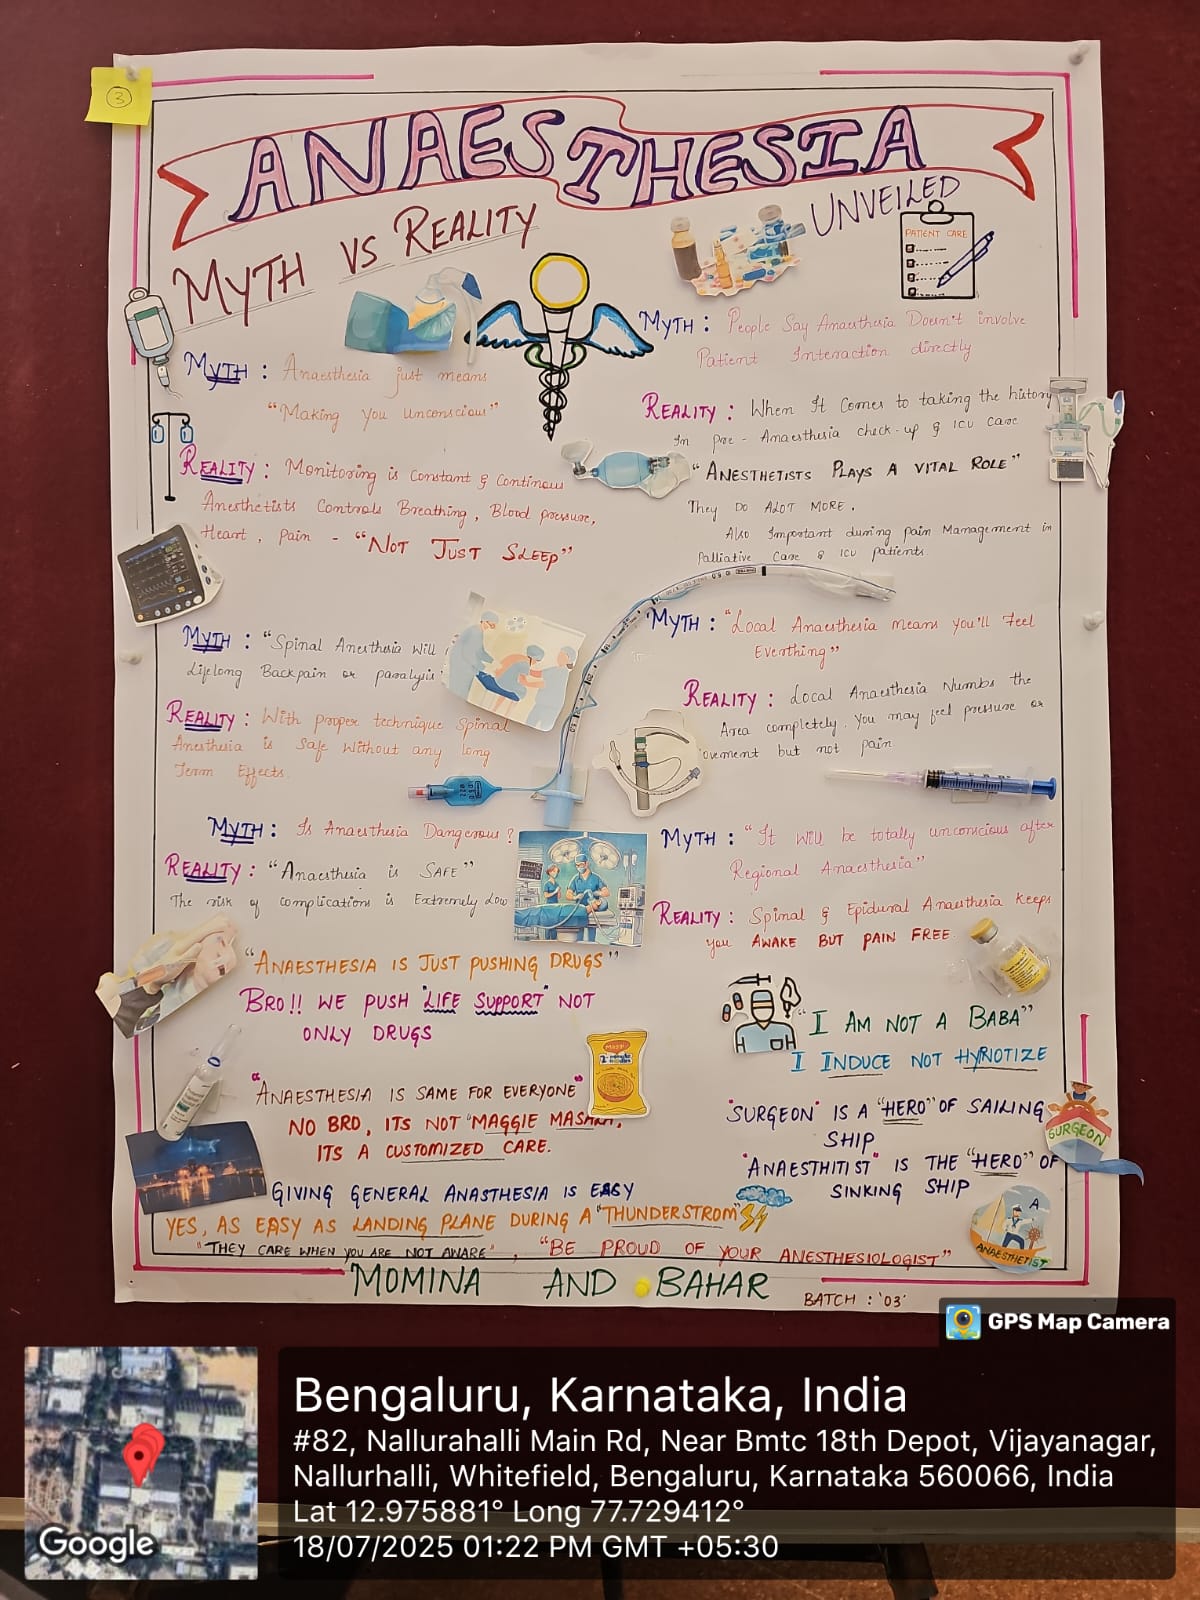 3
ANAESTHESIA
MYTH VS REALITY
UNVEILED
PATIENT CARE
MYTH : Anaesthesia just means
"Making you unconscious"
REALITY : Monitoring is Constant & Continous
Anesthetists Controls Breathing, Blood pressure,
Heart, Pain - "NOT JUST SLEEP"
MYTH : "Spinal Anesthesia will
Lifelong Backpain or paralysis
REALITY : With proper technique Spinal
Anesthesia is Safe without any long
Term Effects.
MYTH : Is Anaesthesia Dangerous ?
REALITY : "Anaesthesia is SAFE"
The risk of complications is Extremely Low
"ANAESTHESIA IS JUST PUSHING DRUGS"
BRO!! WE PUSH "LIFE SUPPORT" NOT
ONLY DRUGS
"ANAESTHESIA IS SAME FOR EVERYONE"
NO BRO, ITS NOT "MAGGIE MASALA,
ITS A CUSTOMIZED CARE.
MYTH : People Say Anaesthesia Doesn't involve
Patient Interaction directly
REALITY : When It Comes to taking the history
In Pre - Anaesthesia check-up & ICU care
"ANESTHETISTS PLAYS A VITAL ROLE"
They DO ALOT MORE.
Also Important during pain Management in
Palliative Care & ICU patients
MYTH : "Local Anaesthesia means you'll Feel
Everthing"
REALITY : Local Anaesthesia Numbs the
Area completely. You may feel pressure or
ovement but not pain
MYTH : "It will be totally unconscious after
Regional Anaesthesia"
REALITY : Spinal & Epidural Anaesthesia keeps
you AWAKE BUT PAIN FREE
"I AM NOT A BABA"
I INDUCE NOT HYPNOTIZE
"SURGEON" IS A "HERO" OF SAILING
SHIP
SURGEON
"ANAESTHITIST" IS THE "HERO" OF
SINKING SHIP
A
ANAESTHETIST
GIVING GENERAL ANASTHESIA IS EASY
YES, AS EASY AS LANDING PLANE DURING A "THUNDERSTROM"
"THEY CARE WHEN YOU ARE NOT AWARE", "BE PROUD OF YOUR ANESTHESIOLOGIST"
MOMINA AND BAHAR
BATCH : '03'
GPS Map Camera
Google
Bengaluru, Karnataka, India
#82, Nallurahalli Main Rd, Near Bmtc 18th Depot, Vijayanagar,
Nallurhalli, Whitefield, Bengaluru, Karnataka 560066, India
Lat 12.975881° Long 77.729412°
18/07/2025 01:22 PM GMT +05:30